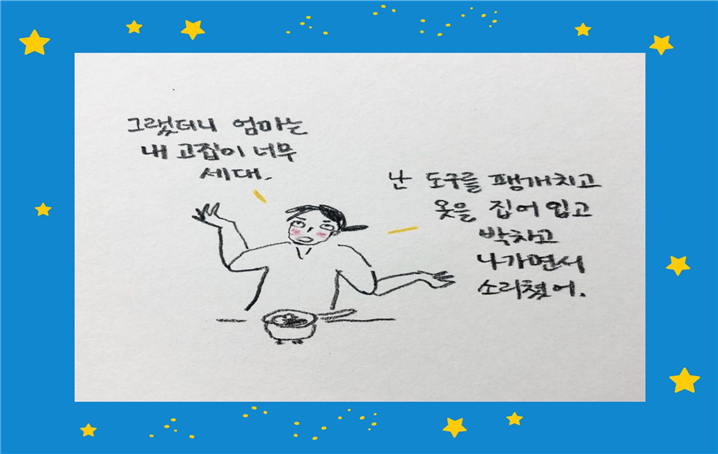 그랬더니 엄마는
내 고집이 너무
세대.
난 도구를 팽개치고
옷을 집어 입고
박차고
나가면서
소리쳤어.